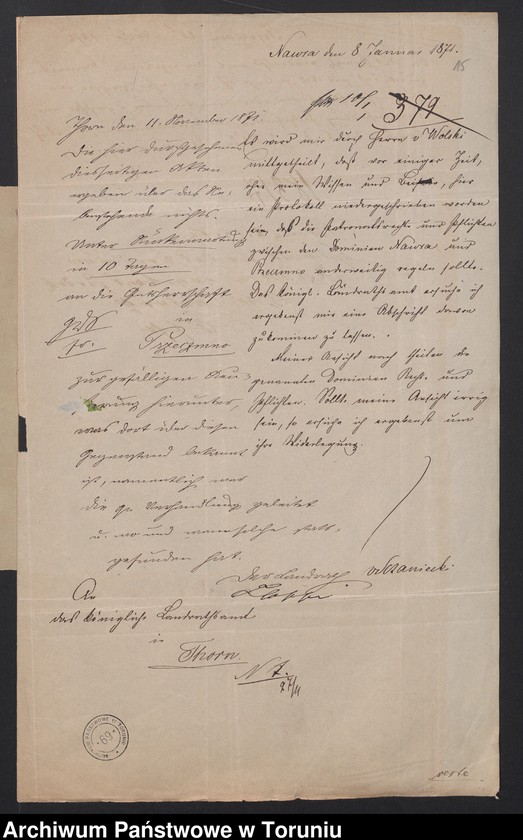 Nawra den 8 Januar 1871.
115
379
Es wird mir durch Herrn v Wolski
mitgetheilt, daß vor einiger Zeit,
ohne mein Wissen und, hier
ein Protokoll niedergeschrieben worden
sein, das die Patronatsrechte und Pflichten
zwischen den Dominien Nawra und
Przeczmno anderweitig regeln sollte.
Das Königl. Landraths amt ersuche ich
ergebenst mir eine Abschrift davon
zukommen zu lassen.
Meiner Ansicht nach theilen die
genannten Dominien Recht und
Pflichten. Sollte meine Ansicht irrig
sein, so ersuche ich ergebenst um
ihre Widerlegung.
v Sczaniecki.
An
das Königliche Landrathsamt
in
Thorn.
Thorn den 11. November 1871.
Die hier
diesseitigen Akten
ergeben über das
nichts.
Unter
in 10 Tagen
an die Gutsherrschaft
in
Przeczmno
zur gefälligen
hierunter,
was dort über diesen
Gegenstand bekannt
ist, namentlich wer
die qu. Verhandlung geleitet
u. wo und wann solche statt-
gefunden hat.
Der Landrath
27/11
verte
ARCHIWUM PAŃSTWOWE W TORUNIU
69
Archiwum Państwowe w Toruniu